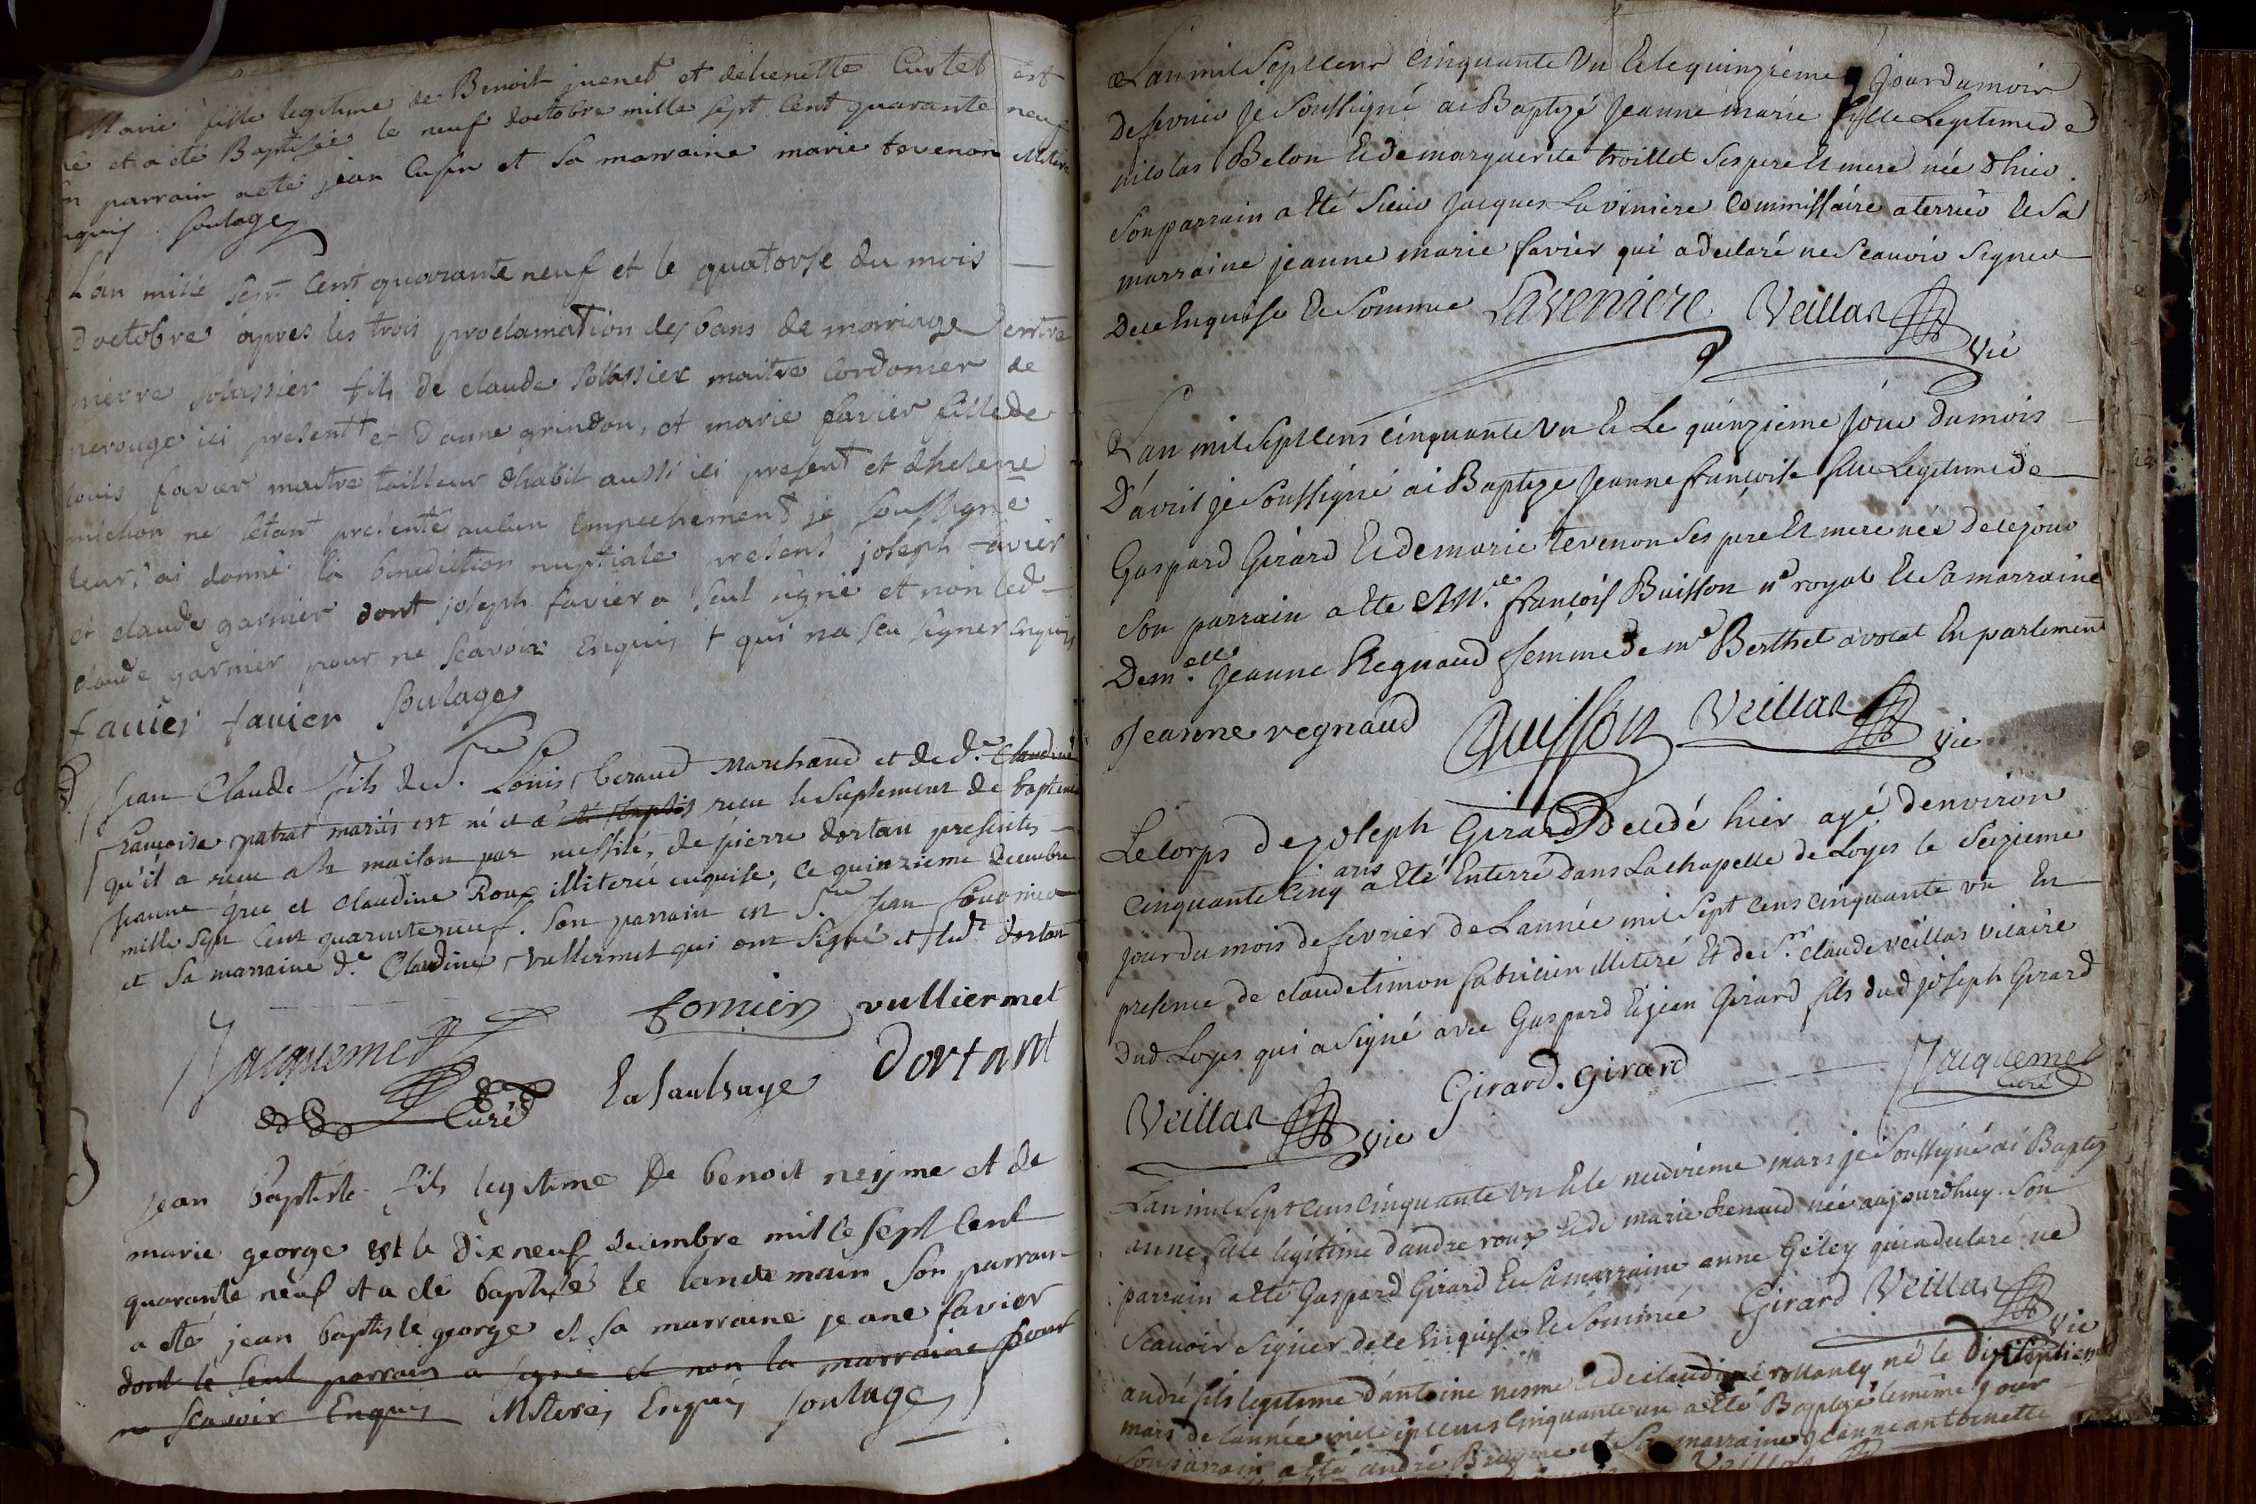 Marie fille legitime de Benoit juenet et de benette Curtet est
né et a été Baptisée le neuf doctobre mille sept Cent quarante neuf
parrain a eté jean Cusin et sa marraine marie tevenon illitere
enquis. soulage
L'an mille sept Cent quarante neuf et le quatorse du mois
doctobre apres les trois proclamation des bans de marriage entre
pierre solassier fils de claude solassier maitre Cordonier de
perouge ici present et d'anne grindon, et marie favier fille de
louis favier maitre tailleur dhabit aussi ici present et dhelene
michon ne sétant presenté aucun Empechement je soussigné
leurs ai donné la benediction nuptiale present joseph favier
et claude garnier dont joseph favier a seul signé et non led
claude garnier pour ne scavoir Enquis + qui na scu signer enquis
favier favier soulage
Jean Claude fils de Sr Louis beraud Marchand et de de Claudine
françoise patrat mariés est né et a été baptis recu le suplement de bapteme
qu'il a recu a la maison par necessité, de pierre dortan presentes
jeanne Gree et claudine Roux illiteré enquise, ce quinzieme decembre
mille sept cent quarante neuf. Son parrain est Sr jean fornier
et sa marraine de Claudine Vulliermet qui ont signé et led dortan
Jacquemet fornier vulliermet
Curé La saulsaye dortant
jean baptiste fils legitime de benoit neyme et de
marie george est le dix neuf decembre mille sept Cent
quarante neuf et a eté baptisé le landemain son parrain
a eté jean baptiste george et sa marraine jeane favier
dont le seul parrain a signé et non la marraine pour
ne scavoir Enquis illiterés Enquis soulage
L'an mil sept cens cinquante un et le quinzieme jour du mois
de fevrier je soussigné ai Baptizé Jeanne marie fille Legitime de
nicolas Belon et de marguerite troillet ses pere et mere née d'hier.
Son parrain a été Sieur Jacques Laviniere Commissaire a terrier et Sa
marraine jeanne marie favier qui a declaré ne Scauoir Signer
de ce Enquise et Sommée Lavenière Veillas vic
L'an mil sept cens cinquante un et Le quinzieme jour du mois
D'avril je Soussigné ai Baptizé Jeanne françoise fille Legitime de
Gaspard Girard et de marie tevenon Ses pere et mere née de ce jour
Son parrain a été Mre françois Buisson nre royal et Sa marraine
Demelle Jeanne Regnaud femme de mr Berthet avocat En parlement
Jeanne regnaud Buisson Veillas vic
Le corps de joseph Girard decedé hier agé d'environ
cinquante cinq ans a été Enterré dans La chapelle de Loyes le Seizieme
jour du mois de fevrier de L'année mil Sept cens cinquante un En
presence de claude timon fabricien illiteré Et de Sr claude veillas vicaire
dud Loyes qui a Signé avec Gaspard et jean Girard fils dud joseph Girard
Veillas vic Girard. girard Jacquemet curé
L'an mil Sept cens cinquante un et le neuvieme mars je Soussigné ai Baptizé
anne fille legitime d'andré roux et de marie Renaud née aujourdhuy. Son
parrain a été Gaspard Girard et Sa marraine anne Geley qui a declaré ne
Scauoir Signer de ce Enquise et Sommée Girard Veillas vic
andré fils legitime d'antoine nesme et de claudine rollandy né le dixseptieme
mars de l'année mil sept cens cinquante un a été Baptizé le même jour
Son parrain a été andré Bruyne et Sa marraine Jeanne antoinette
Veillas